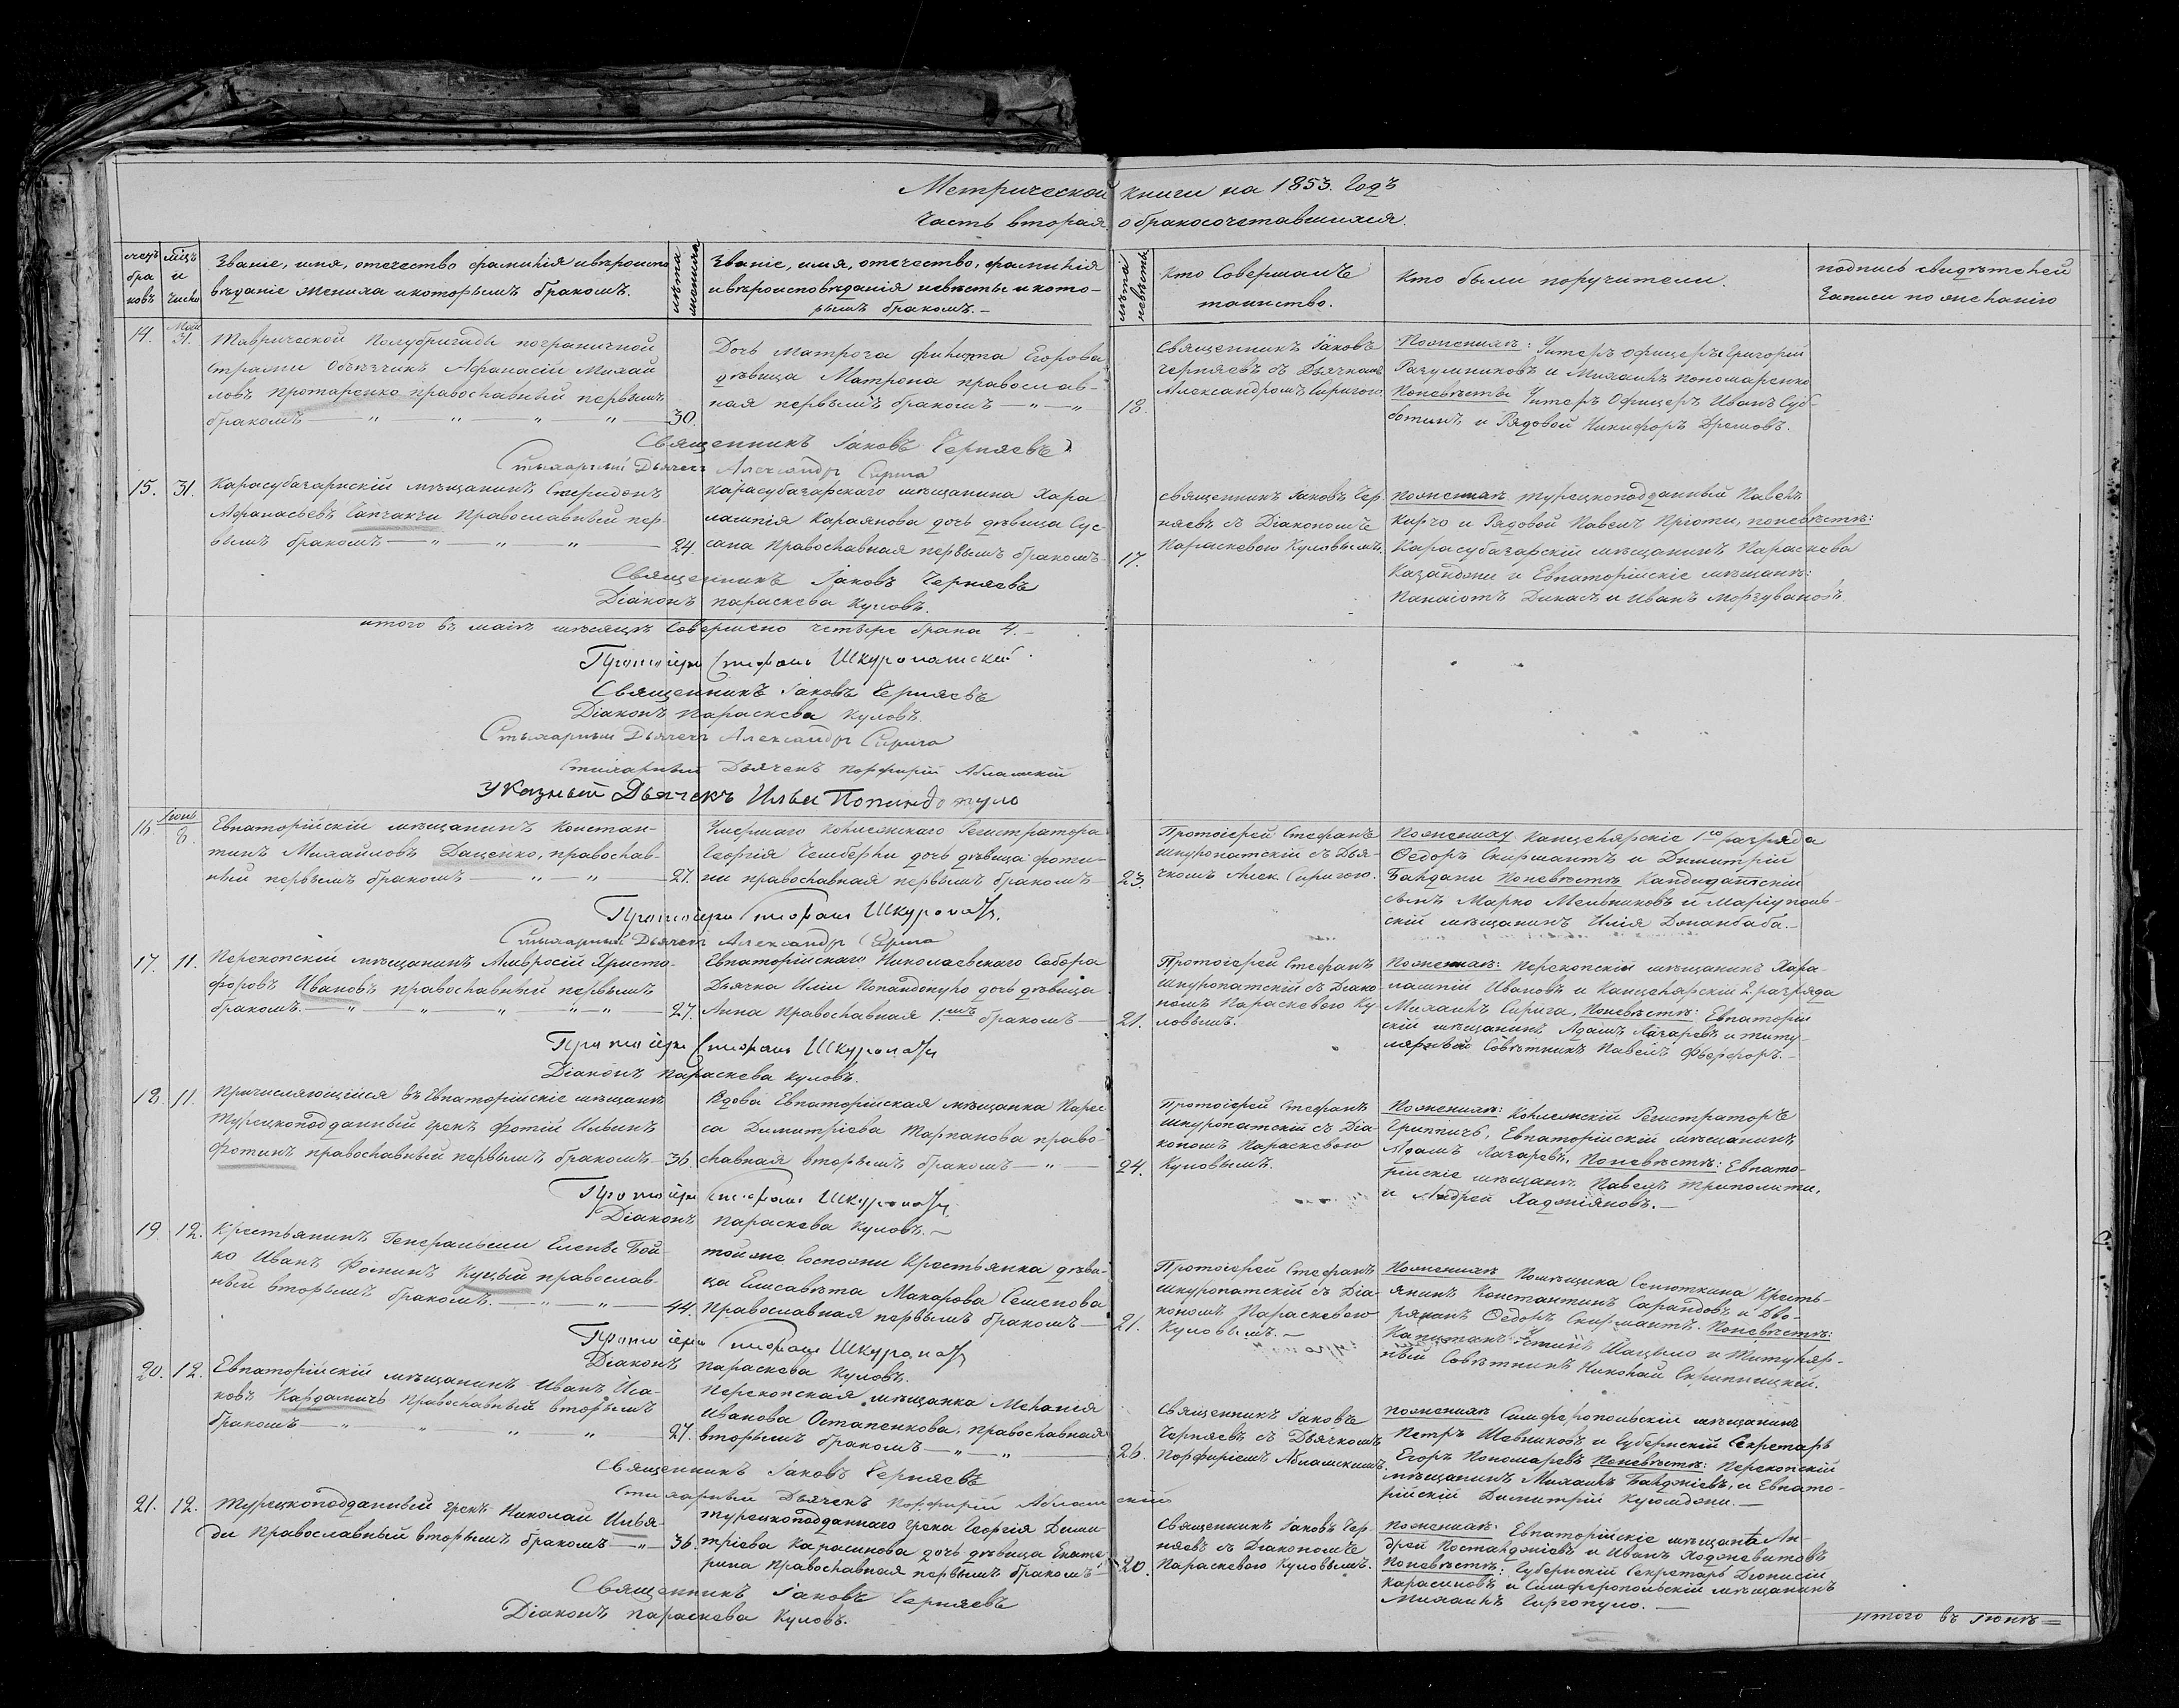 Метрической книги на 1853. Годъ
Часть вторая, о бракосочетавшихся.
счетъ браковъ
мѣцъ и число
Званіе, имя, отечество фамилія и вѣроиспо
вѣданіе жениха и которымъ бракомъ.
лѣта жениха
Званіе, имя, отечество, фамилія
и вѣроисповѣданія невѣсты и кото-
рымъ бракомъ.-
лѣта невѣсты
кто Совершалъ
таинство.
Кто были поручители.
подпись свидѣтелей
Записи по желанію
14.
Маія
31.
Таврической Полубригады пограничной
Стражи Объѣзчикъ Афанасій Михай
ловъ Протаренко православный первымъ
бракомъ — " — " — " — "
30.
Дочь матроза Филипа Егорова
дѣвица Матрона православ-
ная первымъ бракомъ — " — "
18.
Священникъ Іаковъ
Черняевъ съ Дьячкомъ
Александромъ Сиригою.
Поженихѣ: Унтеръ офицеръ Григорій
Разумниковъ и Михаилъ Пономаренко
Поневѣсты Унтеръ Офицеръ Иванъ Суб-
ботинъ и Рядовой Никифоръ Дрешовъ.
Священникъ Іаковъ Черняевъ
Стихарный Дьячекъ Александръ Сирига
15.
31.
Карасубазарнскій мѣщанинъ Спиридонъ
Афанасьевъ Сапчакчи Православный пер-
вымъ бракомъ — " — " — "
24.
Карасубазарскаго мѣщанина Хара
лампія Караянова дочь дѣвица Сус
сана Православная первымъ бракомъ-
17.
Священникъ Іаковъ Чер
няевъ съ Діакономъ
Параскевою Куловымъ.
поженихѣ Турецкоподданный Павелъ
Кирчо и Рядовой Павелъ Пріоти, поневѣстѣ:
Карасубазарскій мѣщанинъ Параскева
Казанджи и Евпаторійскіе мѣщанъ:
Панаіотъ Дикасъ и Иванъ
Священникъ Іаковъ Черняевъ
Діаконъ параскева Куловъ.
итого въ маіѣ мѣсяцѣ Совершено четыре брака 4.-
Протоіерей Стефанъ Шкуропатский.
Священникъ Іаковъ Черняевъ
Діаконъ Параскева Куловъ.
Стихарный Дьячекъ Александръ Сирига
Стихарный Дьячекъ Порфирій Абламскій
Указный Дьячекъ Илья Попандопуло
16.
Іюнь
8.
Евпаторійскій мѣщанинъ Констан-
тинъ Михайловъ Даценко, православ-
ный первымъ бракомъ — " — "
27.
Умершаго Коллежскаго Регистратора
Георгія Чемберли дочь дѣвица Фоти-
ни православная первымъ бракомъ
23.
Протоіерей Стефанъ
Шкуропатскій съ Дья-
чкомъ Алек. Сиригою.
Поженихѣ Канцелярскіе 1го разряда
Ѳедоръ Скирмантъ и Димитрій
Балдани Поневѣстѣ Кандидатскій
сынъ Марко Мельниковъ и Маріуполь-
скій мѣщанинъ Илія Допанбаба.-
Протоіерей Стефанъ Шкуропатс.
Стихарный Дьячекъ Александръ Сирига
17.
11.
Перекопскій мѣщанинъ Амвросій Христо-
форовъ Ивановъ православный первымъ
бракомъ. — " — " — " — "
27.
Евпаторійскаго Николаевскаго Собора
Дьячка Иліи Попандопуло дочь дѣвица
Анна Православная 1мъ бракомъ
21.
Протоіерей Стефанъ
Шкуропатскій съ Діако
номъ Параскевою Ку
ловымъ.
Поженихѣ: Перекопскій мѣщанинъ Хара-
лампій Ивановъ и Канцелярскій 2. разряда
Михаилъ Сирига, Поневѣстѣ: Евпаторій
скій мѣщанинъ Адамъ Лазаревъ и титу-
лярный Совѣтникъ Павелъ
Протоіерей Стефанъ Шкуропатс
Діаконъ Параскева Куловъ.
18.
11.
Причисляющійся въ Евпаторійскіе мѣщане
Турецкоподданный грекъ Фотій Ильинъ
Фотинъ православный первымъ бракомъ
36.
Вдова Евпаторійская мѣщанка Парас
са Димитріева Тарпанова право-
славная вторымъ бракомъ — "
24.
Протоіерей Стефанъ
Шкуропатскій съ Діа-
кономъ Параскевою
Куловымъ.
Поженихѣ: Коллежскій Регистраторъ
Грипничъ, Евпаторійскій мѣщанинъ
Адамъ Лазаревъ, Поневѣстѣ: Евпато-
рійскіе мѣщане Павелъ Триполити,
и Андрей Хаджіяновъ.-
Протоіерей Стефанъ Шкуропатс
Діаконъ Параскева Куловъ.-
19.
12.
Крестьянинъ Генеральши Елены Бой-
ко Иванъ Фоминъ Куцый православ-
ный вторымъ бракомъ. — " — "
44.
тойже Госпожи Крестьянка дѣви-
ца Елисавѣта Макарова Семенова
Православная первымъ бракомъ
21.
Протоіерей Стефанъ
Шкуропатскій съ Діа-
кономъ Параскевою
Куловымъ.-
Поженихѣ Помѣщика Сенюткина Кресть-
янинъ Константинъ Сарандовъ и Дво-
рянинъ Ѳедоръ Скирмантъ. Поневѣстѣ:
Капитанъ Устинъ Шацило и Титуляр-
ный Совѣтникъ Николай Скрипницкій.
Протоіерей Стефанъ Шкуропатс
Діаконъ параскева Куловъ.
20.
12.
Евпаторійскій мѣщанинъ Иванъ Иса-
ковъ Кардашичъ Православный вторымъ
бракомъ — " — " — " — "
27.
Перекопская мѣщанка Меланія
Иванова Остапенкова, православная
вторымъ бракомъ — " — "
26.
Священникъ Іаковъ
Черняевъ съ Дьячкомъ
Порфиріемъ Абламскимъ.
поженихѣ Симферопольскій мѣщанинъ
Петръ Шевниковъ и Губернскій Секретарь
Егоръ Пономаревъ Поневѣстѣ: Перекопскій
мѣщанинъ Михаилъ Балджіевъ, и Евпато-
рійскій Димитрій Куюмджи.-
Священникъ Іаковъ Черняевъ
Стихарный Дьячекъ Порфирій Абламскій
21.
12.
Турецкоподданный грекъ Николай Илья-
ди Православный вторымъ бракомъ — "
36.
Турецкоподданнаго грека Георгія Дими-
тріева Карасинова дочь дѣвица Екате-
рина Православная первымъ бракомъ
20.
Священникъ Іаковъ Чер-
няевъ съ Діакономъ
Параскевою Куловымъ.
поженихѣ: Евпаторійскіе мѣщане Ан-
дрей Постанджіевъ и Иванъ
Поневѣстѣ: Губернскій Секретарь Діонисій
Карасиновъ и Симферопольскій мѣщанинъ
Михаилъ Чиргопуло.-
Священникъ Іаковъ Черняевъ
Діаконъ параскева Куловъ.
итого въ Іюнѣ